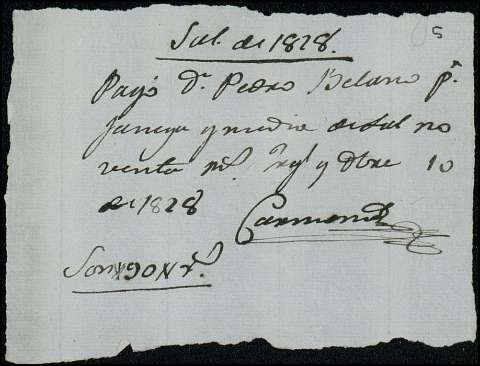 Sal. de 1828.
Pagó Dn. Pedro Belano pr.
fanega y media de sal no
venta rs. y Dbre 10
de 1828
Carmona
Son 90 rs.